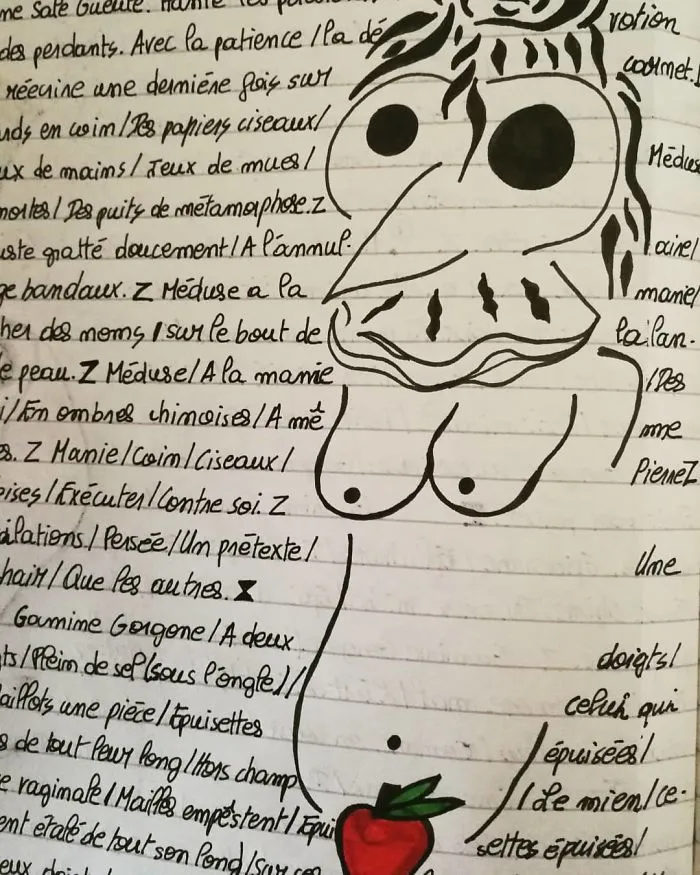 me sale gueule. Hante les
rotion
des perdants. Avec la patience / la dé
carmet.
réécrire une dernière fois sur
uds en coin / Des papiers ciseaux /
Médus
ux de mains / Jeux de mues /
mortes / Des puits de métamorphose. Z
uste gratté doucement / A l'annul-
aire /
ge bandaux. Z Méduse a la
manie /
her des noms / sur le bout de
la lan-
e peau. Z Méduse / A la manie
/ Des
i / En ombres chinoises / A mê
me
s. Z Manie / Coin / Ciseaux /
Pierre Z
oises / Exécuter / Contre soi. Z
ilations / Persée / Un prétexte /
Une
hair / Que les autres.
Gamine Gorgone / A deux
doigts /
ts / Plein de sel (sous l'ongle) /
celui qui
aillots une pièce / Epuisettes
épuisées /
s de tout leur long / Hors champ
/ Le mien / Ce-
e vaginale / Mailles empestent / Epui
settes épuisées /
ent étalé de tout son long / Sur ces
eux doigts